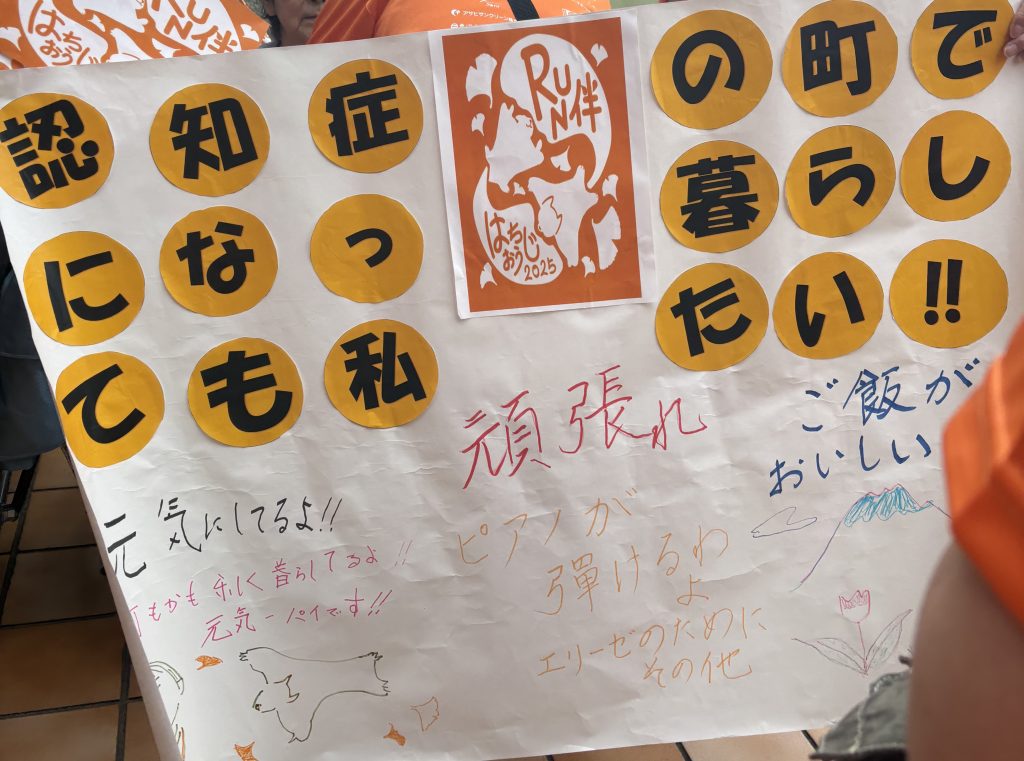 アサヒサンクリーン
RUN伴
はちおうじ
認知症
になっ
ても私
RUN伴
はちおうじ
2025
の町で
暮らし
たい!!
頑張れ
ご飯が
おいしい
元気にしてるよ!!
もかも楽しく暮らしてるよ!!
元気一パイです!!
ピアノが
彈けるわ
よ
エリーゼのために
その他